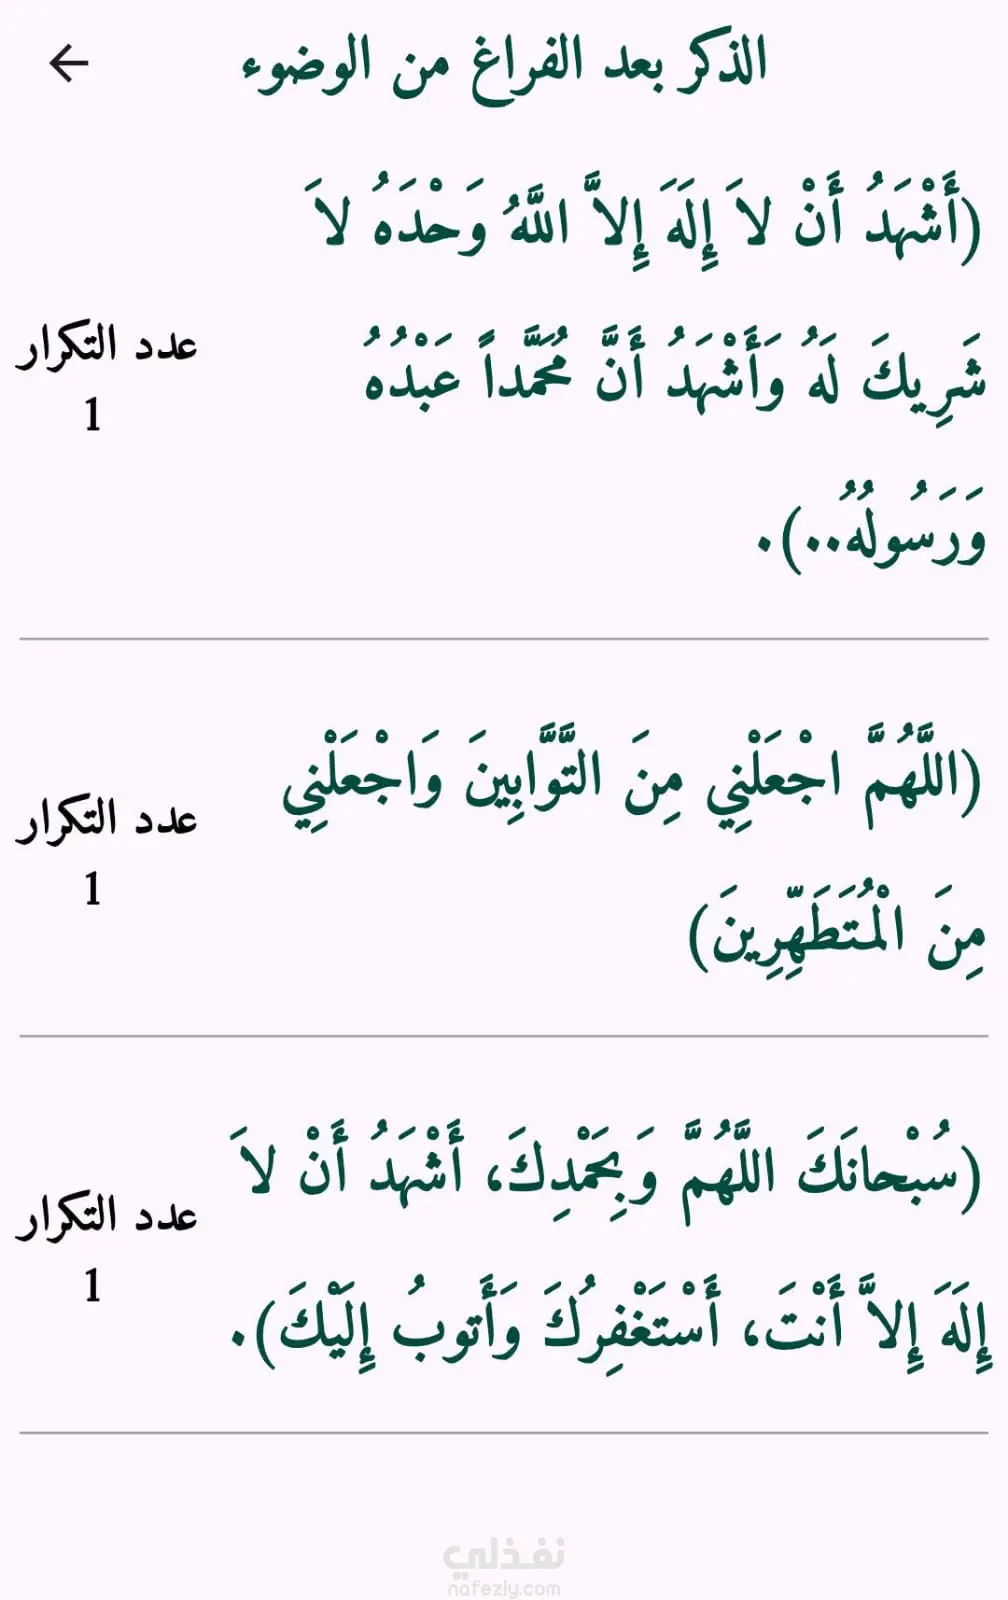 الذكر بعد الفراغ من الوضوء
(أَشْهَدُ أَنْ لاَ إِلَهَ إِلاَّ اللَّهُ وَحْدَهُ لاَ
شَرِيكَ لَهُ وَأَشْهَدُ أَنَّ مُحَمَّداً عَبْدُهُ
وَرَسُولُهُ..).
عدد التكرار
1
(اللَّهُمَّ اجْعَلْنِي مِنَ التَّوَّابِينَ وَاجْعَلْنِي
مِنَ الْمُتَطَهِّرِينَ)
عدد التكرار
1
(سُبْحانَكَ اللَّهُمَّ وَبِحَمْدِكَ، أَشْهَدُ أَنْ لاَ
إِلَهَ إِلاَّ أَنْتَ، أَسْتَغْفِرُكَ وَأَتوبُ إِلَيْكَ).
عدد التكرار
1
نفذلي
nafezly.com